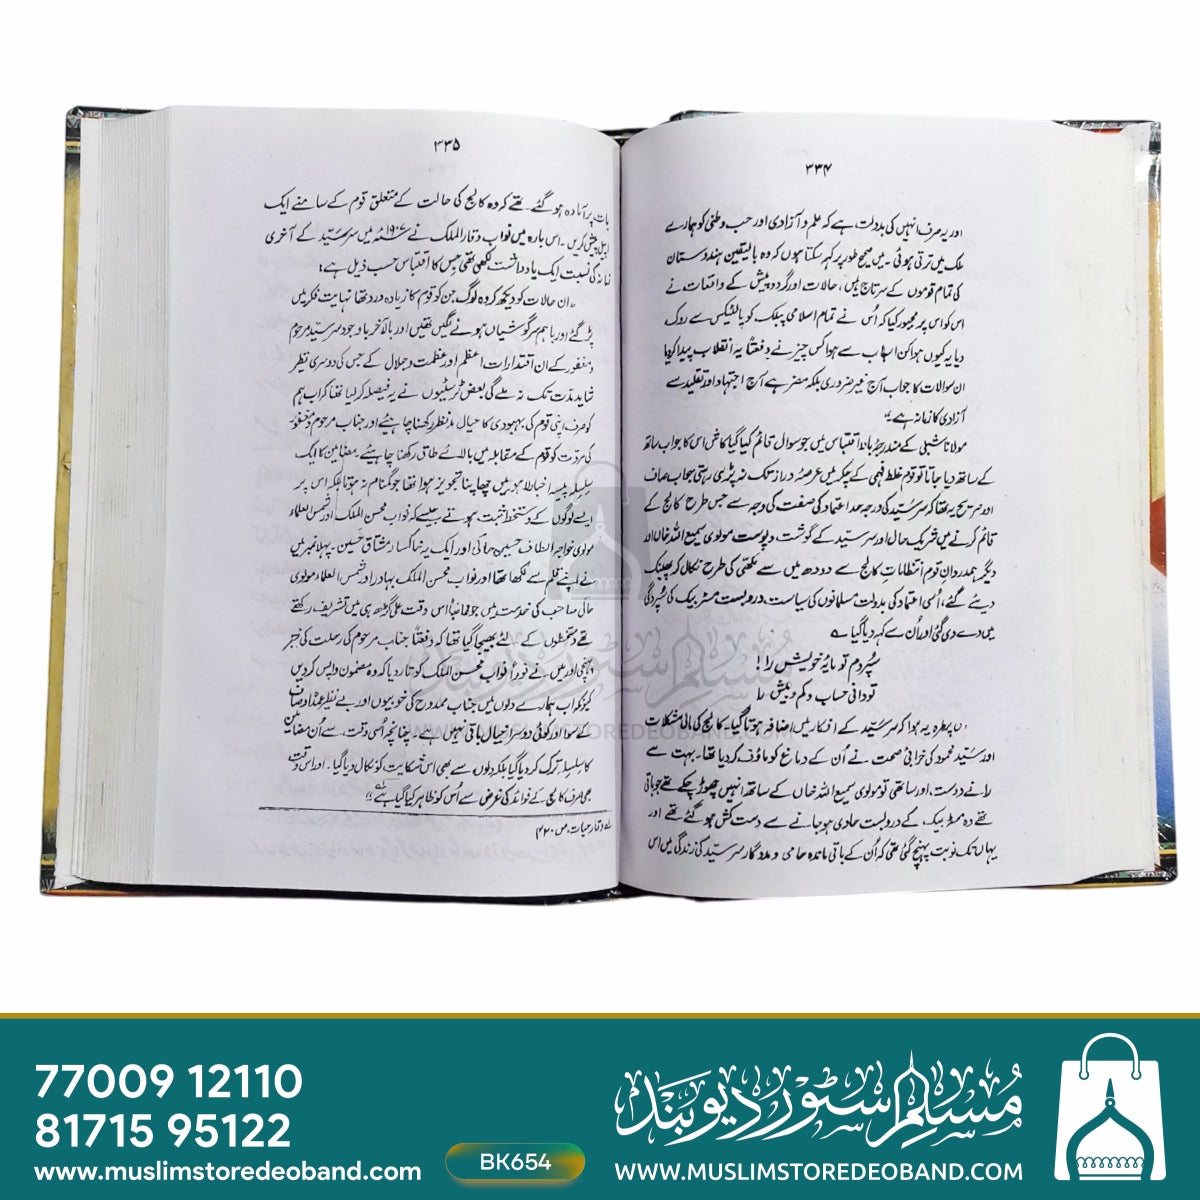 ۳۳۴
اور یہ صرف انہیں کی بدولت ہے کہ علم و آزادی اور حب وطنی کو ہمارے
ملک میں ترقی ہوئی ۔ میں صحیح طور پر کہہ سکتا ہوں کہ وہ بالیقین ہندوستان
کی تمام قوموں کے سرتاج ہیں ، حالات اور گرد و پیش کے واقعات نے
اس کو اس پر مجبور کیا کہ اُس نے تمام اسلامی پبلک کو پالٹیکس سے روک
دیا یہ کیوں ہوا کن اسباب سے ہوا کس چیز نے دفعتاً یہ انقلاب پیدا کر دیا
ان سوالات کا جواب آج غیر ضروری بلکہ مضر ہے آج اجتہاد اور تقلید سے
آزادی کا زمانہ ہے
مولانا شبلی کے مندرجہ بالا اقتباس میں جو سوال قائم کیا گیا کاش اس کا جواب ساتھ
کے ساتھ دیا جاتا تو قوم غلط فہمی کے چکر میں عرصۂ دراز تک نہ پڑی رہتی جواب صاف
اور صریح یہ تھا کہ سرسید کی درجہ حد اعتماد کی صفت کی وجہ سے جس طرح کالج کے
قائم کرنے میں شریک حال اور سرسید کے گوشت و پوست مولوی سمیع اللہ خاں اور
دیگر ہمدردان قوم انتظامات کالج سے دودھ میں سے مکھی کی طرح نکال کر پھینک
دیئے گئے ، اُسی اعتماد کی بدولت مسلمانوں کی سیاست دروبست مسٹر بیک کی سُپردگی
میں دے دی گئی اور اُن سے کہہ دیا گیا ہے
سُپردم تو مایۂ خویش را !
تو دانی حساب و کم و بیش را
پھر یہ ہوا کہ سرسید کے افکار میں اضافہ ہوتا گیا ۔ کالج کی مالی مشکلات
اور سید محمود کی خرابی صحت نے اُن کے دماغ کو ماؤف کر دیا تھا ۔ بہت سے
پرانے دوست اور ساتھی تو مولوی سمیع اللہ خاں کے ساتھ انہیں چھوڑ چکے تھے جو باقی
تھے وہ مسٹر بیک کے دروبست حاوی ہو جانے سے دست کش ہو گئے تھے اور
یہاں تک نوبت پہنچ گئی تھی کہ اُن کے باقی ماندہ حامی و مددگار سرسید کی زندگی میں اس
۳۳۵
بات پر آمادہ ہو گئے تھے کہ وہ کالج کی حالت کے متعلق قوم کے سامنے ایک
اپیل پیش کریں ۔ اس بارہ میں نواب وقار الملک نے ۱۹۰۷ء میں سرسید کے آخری
زمانہ کی نسبت ایک یادداشت لکھی تھی جس کا اقتباس حسب ذیل ہے :
"ان حالات کو دیکھ کر وہ لوگ جن کو قوم کا زیادہ درد تھا نہایت فکر میں
پڑ گئے اور باہم سرگوشیاں ہونے لگیں تھیں اور بالآخر باوجود سرسید مرحوم
و مغفور کے ان اقتدارات اعظم اور عظمت و جلال کے جس کی دوسری نظیر
شاید مدت تک نہ ملے گی بعض ٹرسٹیوں نے یہ فیصلہ کر لیا تھا کہ اب ہم
کو صرف اپنی قوم کی بہبودی کا خیال مد نظر رکھنا چاہیئے اور جناب مرحوم و مغفور
کی مروت کو قوم کے مقابلہ میں بالائے طاق رکھنا چاہیئے ۔ مضامین کا ایک
سلسلہ پیسہ اخبار لاہور میں چھاپنا تجویز ہوا تھا جو گمنام نہ ہوتا بلکہ اس پر
ایسے لوگوں کے دستخط ثبت ہوتے جیسے کہ نواب محسن الملک اور شمس العلماء
مولوی خواجہ الطاف حسین حالی اور ایک یہ خاکسار مشتاق حسین ۔ پہلا نمبر میں
نے اپنے قلم سے لکھا تھا اور نواب محسن الملک بہادر اور شمس العلماء مولوی
حالی صاحب کی خدمت میں جو غالباً اس وقت علی گڑھ ہی میں تشریف رکھتے
تھے دستخطوں کے لئے بھیجا گیا تھا کہ دفعتاً جناب مرحوم کی رحلت کی خبر
پہنچی اور میں نے فوراً نواب محسن الملک کو تار دیا کہ وہ مضمون واپس کر دیں
کیونکہ اب ہمارے دلوں میں جناب ممدوح کی خوبیوں اور بے نظیر اوصاف
کے سوا اور کوئی دوسرا خیال باقی نہیں ہے ۔ چنانچہ اُسی وقت سے اُن مضامین
کا سلسلہ ترک کر دیا گیا بلکہ دلوں سے بھی اس شکایت کو نکال دیا گیا ۔ اور اس وقت
بھی صرف کالج کے فوائد کی غرض سے اُس کو ظاہر کیا گیا ہے
لے وقار حیات ، ص ۴۲۰
مسلم سٹور دیوبند
WWW.MUSLIMSTOREDEOBAND.COM
77009 12110
81715 95122
www.muslimstoredeoband.com
BK654
مسلم سٹور دیوبند
WWW.MUSLIMSTOREDEOBAND.COM